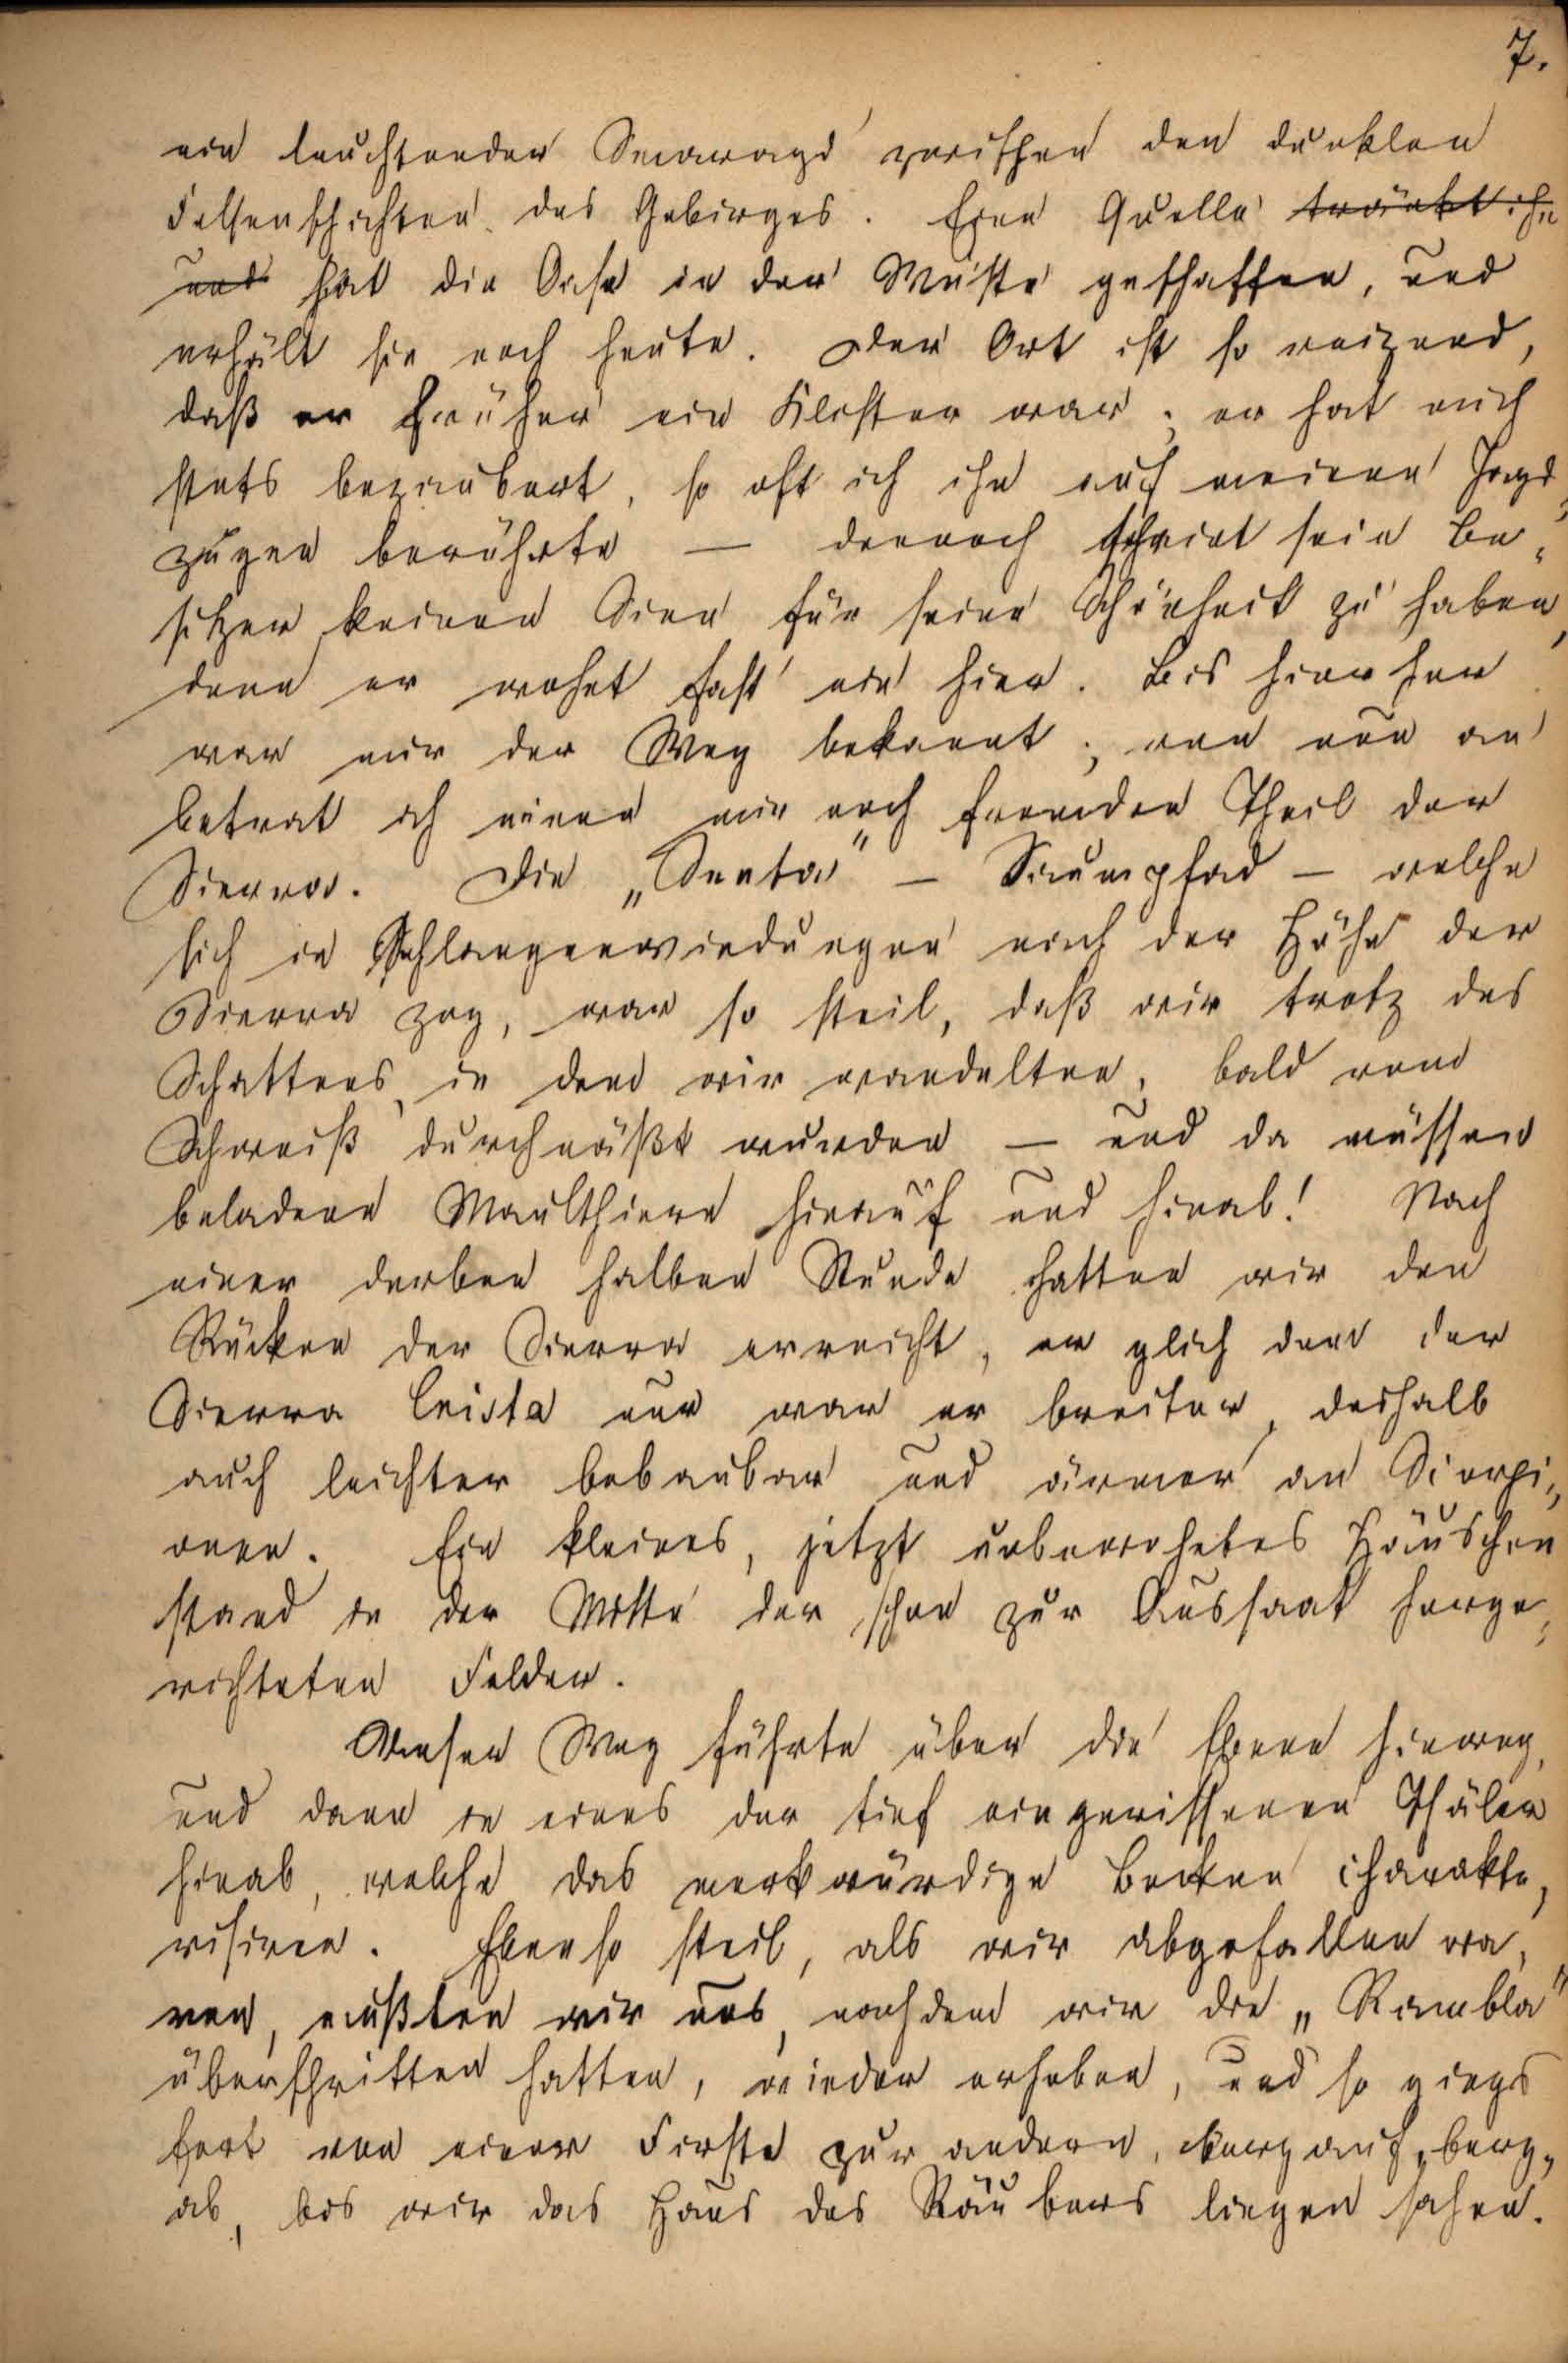 7.
ein leuchtender Smaragd zwischen den dunklen
Felsenschichten des Gebirges. Eine Quelle tränkt ihn
und hat die Oase in der Wüste geschaffen, und
erhält sie noch heute. Der Ort ist so reizend,
daß er früher ein Kloster war; er hat mich
stets bezaubert, so oft ich ihn auf meinen Jagd-
zügen berührte — dennoch scheint sein Be-
sitzer keinen Sinn für seine Schönheit zu haben,
denn er wohnt fast nie hier. Bis hierher
war mir der Weg bekannt; von nun an
betrat ich einen mir noch fremden Theil der
Sierra. Die „Senta" — Saumpfad — welche
sich in Schlangenwindungen nach der Höhe der
Sierra zog, war so steil, daß wir trotz des
Schattens, in dem wir wandelten, bald vom
Schweiß durchnäßt wurden — und da müssen
beladene Maulthiere hinauf und hinab! Nach
einer derben halben Stunde hatten wir den
Rücken der Sierra erreicht, er glich dem der
Sierra nur war er breiter, deshalb
auch leichter bebaubar und ärmer an Scorpi-
onen. Ein kleines, jetzt unbewohntes Häuschen
stand in der Mitte der schon zur Aussaat herge-
richteten Felder.
Unser Weg führte über die Ebene hinweg,
und dann in eines der tief eingerissenen Thäler
hinab, welche das merkwürdige Becken charakte-
risiren. Ebenso steil, als wir abgefallen wa-
ren, mußten wir uns, nachdem wir die „Rambla"
überschritten hatten, wieder erheben, und so giengs
fort von einer Firste zur andern, bergauf, berg-
ab, bis wir das Haus des Räubers liegen sahen.